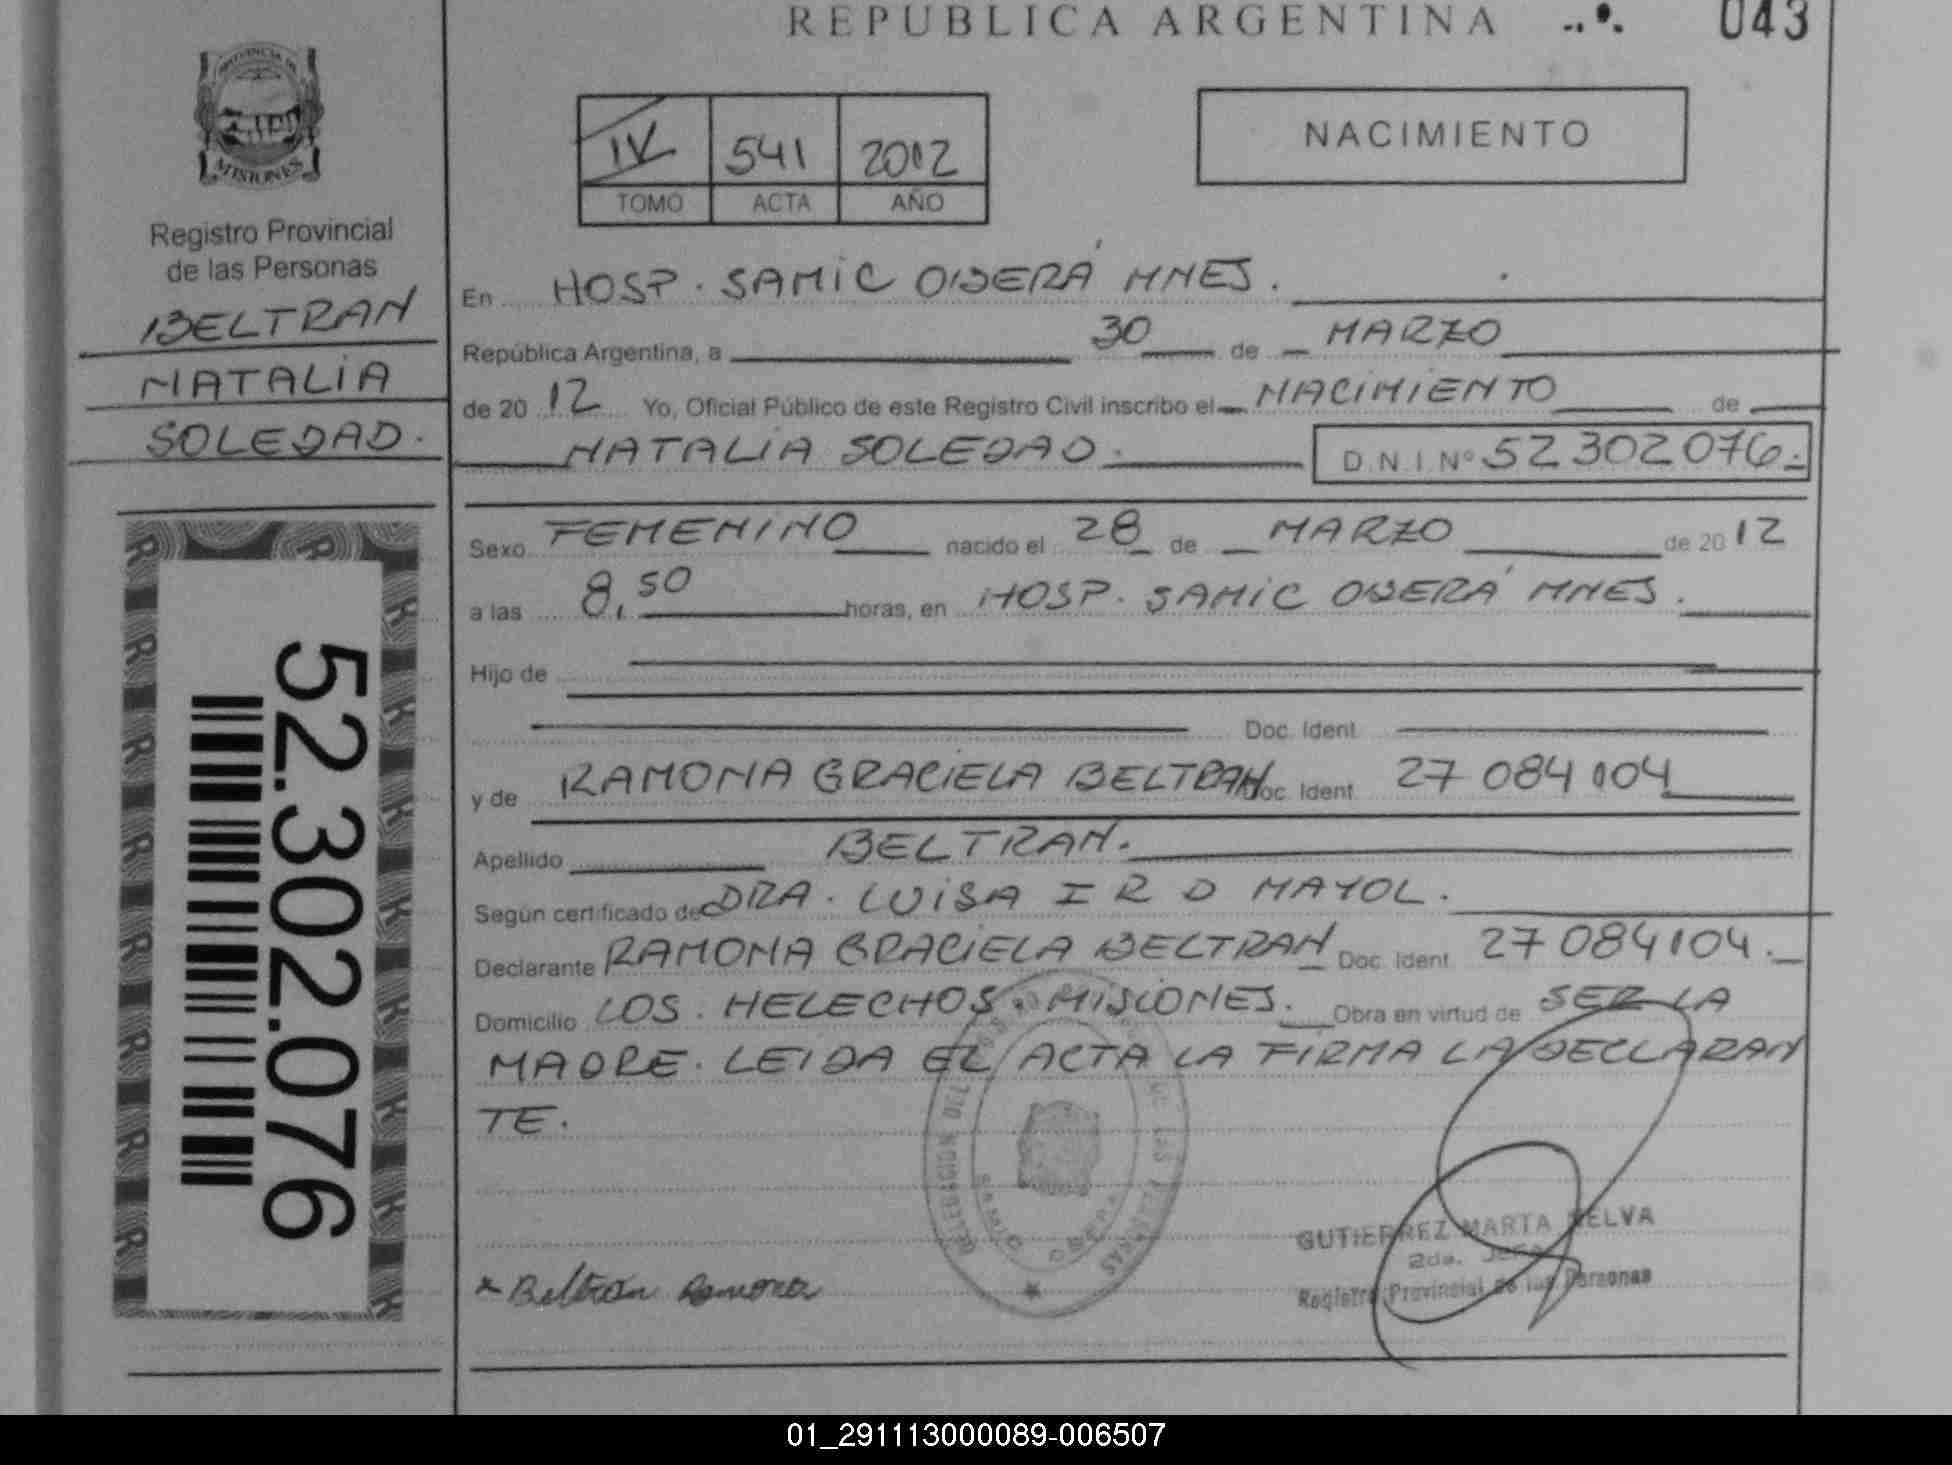 REPUBLICA ARGENTINA
043
PROVINCIA DE
MISIONES
Registro Provincial
de las Personas
BELTRAN
NATALIA
SOLEDAD.
52.302.076
IV 541 2012
TOMO ACTA AÑO
NACIMIENTO
En HOSP. SAMIC OBERÁ MNES.
República Argentina, a 30 de MARZO
de 20 12 Yo, Oficial Público de este Registro Civil inscribo el NACIMIENTO de
NATALIA SOLEDAD. D.N.I. Nº 52 302 076.
Sexo FEMENINO nacido el 28 de MARZO de 20 12
a las 8,50 horas, en HOSP. SAMIC OBERÁ MNES.
Hijo de
Doc. Ident.
y de RAMONA GRACIELA BELTRAN Doc. Ident. 27 084 104
Apellido BELTRAN.
Según certificado de DRA. LUISA I R D MAYOL.
Declarante RAMONA GRACIELA BELTRAN Doc. Ident. 27 084 104.
Domicilio LOS HELECHOS. MISIONES. Obra en virtud de SER LA
MADRE. LEIDA EL ACTA LA FIRMA LA DECLARAN
TE.
SAMIC OBERA
Beltrán Ramona
GUTIERREZ MARTA NELVA
2da. Jefa
Registro Provincial de las Personas
01_291113000089-006507